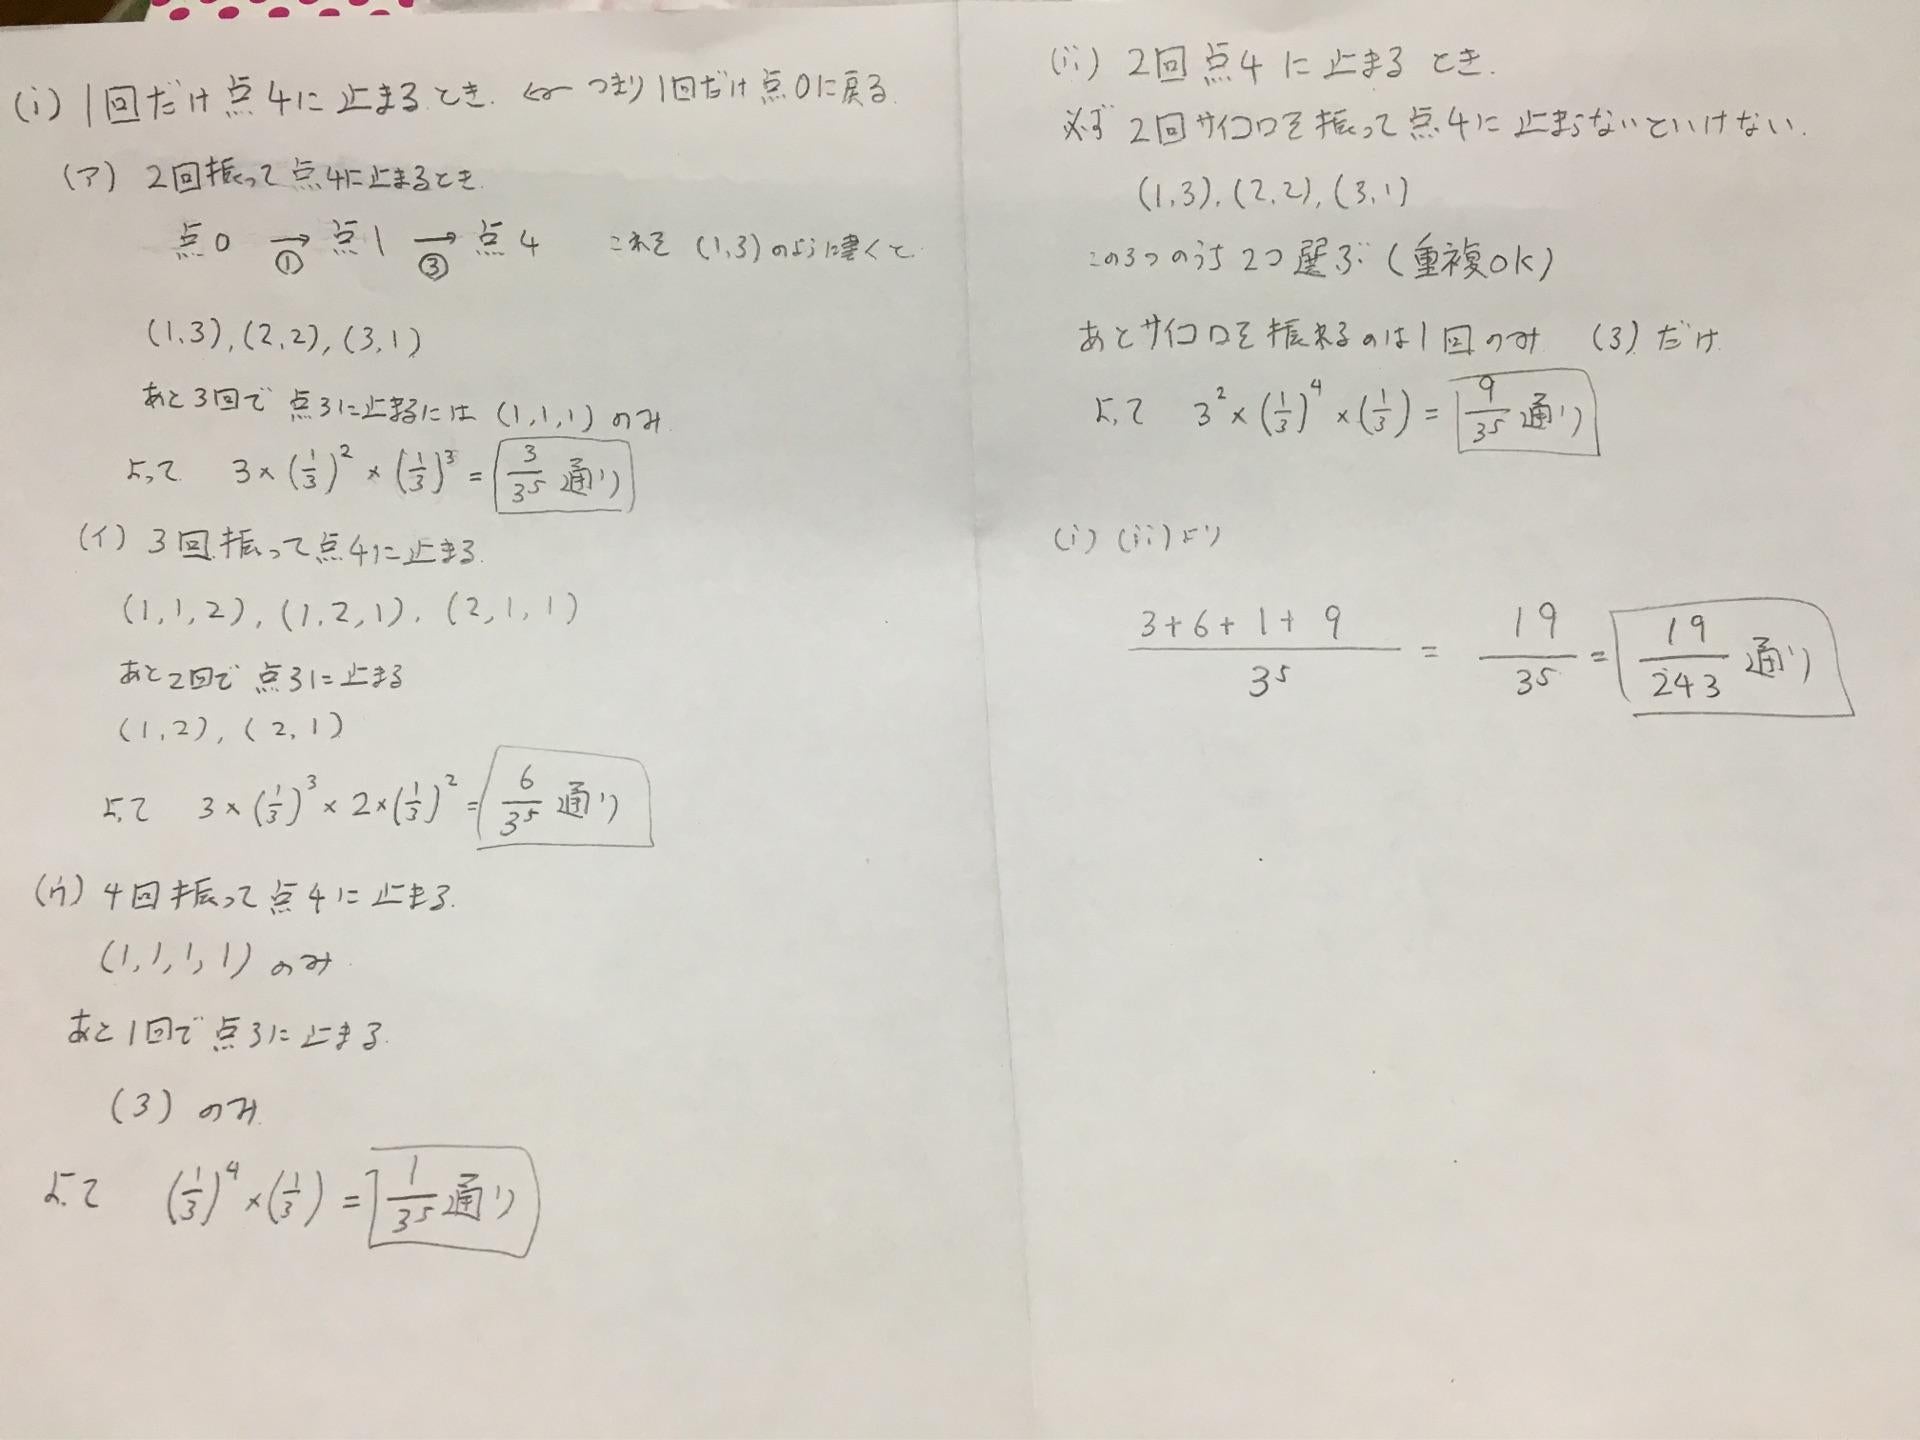 (i) 1回だけ点4に止まるとき. ← つまり1回だけ点0に戻る
(ア) 2回振って点4に止まるとき
点0 →① 点1 →③ 点4 これを(1,3)のように書くと
(1,3), (2,2), (3,1)
あと3回で点3に止まるには(1,1,1)のみ
よって 3×(1/3)^2×(1/3)^3 = 3/3^5 通り
(イ) 3回振って点4に止まる.
(1,1,2), (1,2,1), (2,1,1)
あと2回で点3に止まる
(1,2), (2,1)
よって 3×(1/3)^3×2×(1/3)^2 = 6/3^5 通り
(ウ) 4回振って点4に止まる.
(1,1,1,1)のみ
あと1回で点3に止まる.
(3)のみ
よって (1/3)^4×(1/3) = 1/3^5 通り
(ii) 2回点4に止まるとき.
必ず2回サイコロを振って点4に止まらないといけない.
(1,3), (2,2), (3,1)
この3つのうち2つ選ぶ(重複OK)
あとサイコロを振れるのは1回のみ (3)だけ
よって 3^2×(1/3)^4×(1/3) = 9/3^5 通り
(i) (ii)より
(3+6+1+9)/3^5 = 19/3^5 = 19/243 通り